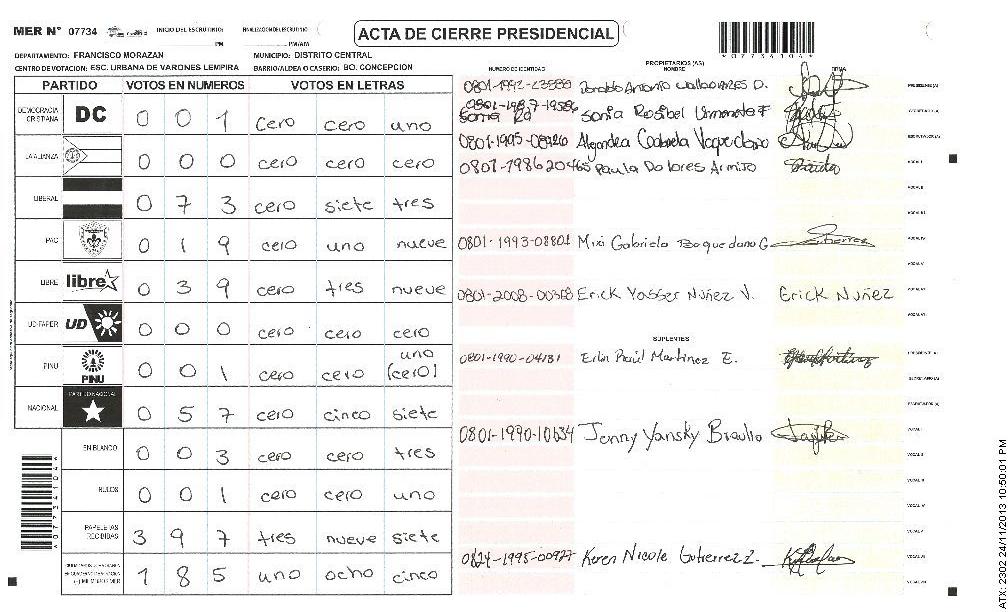 MER N° 07734 INICIO DEL ESCRUTINIO: FINALIZACION DEL ESCRUTINIO:
PM PM/AM
ACTA DE CIERRE PRESIDENCIAL
DEPARTAMENTO: FRANCISCO MORAZAN MUNICIPIO: DISTRITO CENTRAL
CENTRO DE VOTACION: ESC. URBANA DE VARONES LEMPIRA BARRIO/ALDEA O CASERIO: BO. CONCEPCION
PARTIDO VOTOS EN NUMEROS VOTOS EN LETRAS
DEMOCRACIA CRISTIANA DC 0 0 1 cero cero uno
LA ALIANZA 0 0 0 cero cero cero
LIBERAL 0 7 3 cero siete tres
PAC 0 1 9 cero uno nueve
LIBRE libre 0 3 9 cero tres nueve
UD-FAPER UD 0 0 0 cero cero cero
PINU PINU 0 0 1 cero cero uno (cero)
NACIONAL PARTIDO NACIONAL 0 5 7 cero cinco siete
EN BLANCO 0 0 3 cero cero tres
NULOS 0 0 1 cero cero uno
PAPELETAS RECIBIDAS 3 9 7 tres nueve siete
1 8 5 uno ocho cinco
NUMERO DE IDENTIDAD PROPIETARIOS (AS) NOMBRE FIRMA
Antonio PRESIDENTE (A)
Sonia Rosibel SECRETARIO (A)
0801-1995-08926 Alejandra Gabriela Vaquedano ESCRUTADOR (A)
0801-1986 20465 Paula Dolores Armijo VOCAL I
VOCAL II
VOCAL III
0801-1993-08801 Mixi Gabriela Baquedano G. VOCAL IV
VOCAL V
0801-2008-00368 Erick Yasser Nuñez V. Erick Nuñez
VOCAL VI
SUPLENTES
0801-1990-04131 Raúl Martinez E. PRESIDENTE (A)
SECRETARIO (A)
ESCRUTADOR (A)
0801-1990-10634 Jenny Yansky Braulio VOCAL I
VOCAL II
VOCAL III
VOCAL IV
VOCAL V
0824-1995-00927 Keren Nicole Gutierrez Z. VOCAL VI
VOCAL VII
ATX: 2302 24/11/2013 10:50:01 PM